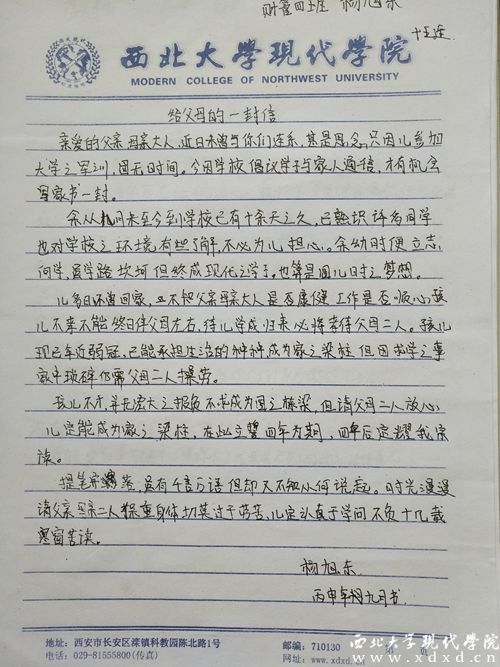 财管四班 杨旭东
十五连
西北大學現代學院
MODERN COLLEGE OF NORTHWEST UNIVERSITY
给父母的一封信
亲爱的父亲母亲大人，近日未曾与你们连系，甚是思念。只因儿参加
大学之军训，固无时间。今因学校倡议学子与家人通信，才有机会
写家书一封。
余从九月来至今到学校已有十余天之久，已熟识许多同学
也对学校之环境有些了解，不必为儿担心。余幼时便立志
问学，虽学路坎坷但终成现代之学子。也算是圆儿时之梦想。
儿多日还曾回家，亦不知父亲母亲大人是否康健工作是否顺心，孩
儿不孝不能终日伴父母左右，待儿学成归来必将孝待父母二人。孩儿
现已年近弱冠，已能承担生活的种种，成为家之梁柱但因求学之事
家中琐碎仍需父母二人操劳。
孩儿不才，并无宏大之报负不求成为国之栋梁，但请父母二人放心
儿定能成为家之梁柱，在此立誓四年为期，四年后定耀我宗
族。
提笔需落，虽有千言万语但却又不知从何说起。时光漫漫
请父亲母亲二人保重身体切莫过于劳苦，儿定认真于学问不负十几载
寒窗苦读。
杨旭东
丙申年 九月书
地址：西安市长安区滦镇科教园陈北路1号
邮编：710130
电话：029-81555800(传真)
网址：www.xdxd.cn
第 页
西北大学现代学院
www.xdxd.cn